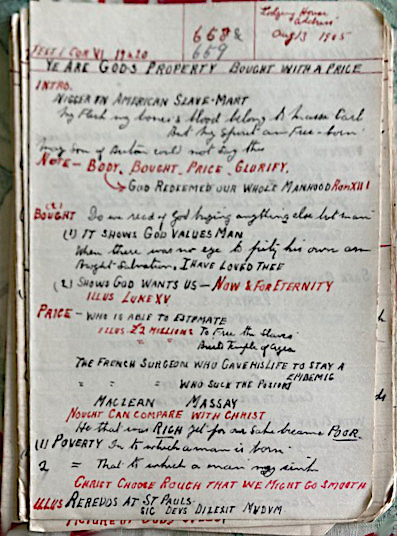 Lodging House
address
Aug 13 1905
658 &
659
TEXT 1 COR VI 19 & 20
YE ARE GOD'S PROPERTY BOUGHT WITH A PRICE
INTRO.
NIGGER IN AMERICAN SLAVE-MART
My flesh my bones & blood belong to massa Carl
But my spirit am Free-born
any son of Britain could not say this
NOTE - BODY, BOUGHT, PRICE, GLORIFY.
GOD REDEEMED OUR WHOLE MANHOOD Rom XII 1
BOUGHT Do we read of God buying anything else but man
(1) IT SHOWS GOD VALUES MAN
When there was no eye to pity his own arm
brought Salvation, I HAVE LOVED THEE
(2) SHOWS GOD WANTS US - NOW & FOR ETERNITY
ILLUS LUKE XV
PRICE - WHO IS ABLE TO ESTIMATE
ILLUS £2 MILLIONS To Free the Slaves
Temple of
THE FRENCH SURGEON WHO GAVE HIS LIFE TO STAY A
EPIDEMIC
" " " WHO SUCK THE POISON
MACLEAN MASSAY
NOUGHT CAN COMPARE WITH CHRIST
He that was RICH yet for our sake became POOR.
(1) POVERTY In to which a man is born
2 = That to which a man may sink
CHRIST CHOOSE ROUGH THAT WE MIGHT GO SMOOTH
ILLUS REREDOS AT ST PAULS
SIC DEVS DILEXIT MVDVM